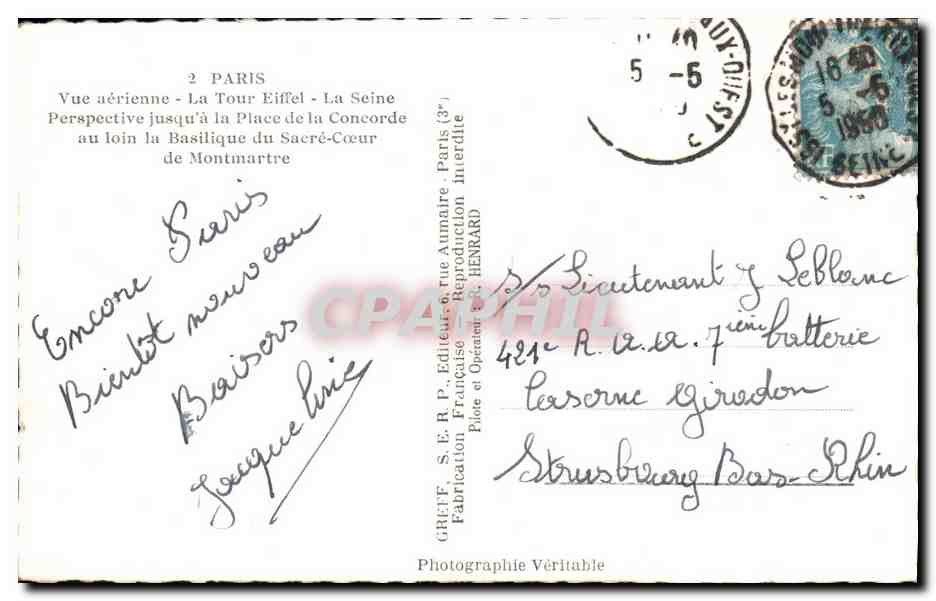 2 PARIS
Vue aérienne - La Tour Eiffel - La Seine
Perspective jusqu'à la Place de la Concorde
au loin la Basilique du Sacré-Cœur
de Montmartre
Encore Paris
Bientôt nouveau
Baisers
Jacqueline
GREFF, S. E. R. P., Editeur, 6, rue Aumaire - Paris (3e)
Fabrication Française - Reproduction interdite
Pilote et Opérateur : R. HENRARD
5 -5
UX-OUEST
16 30
5 -5
1950
SEINE
S/s Lieutenant J Leblanc
421e R.a.a. 7ième batterie
Caserne Giradon
Strasbourg Bas-Rhin
Photographie Véritable
CPAPHIL